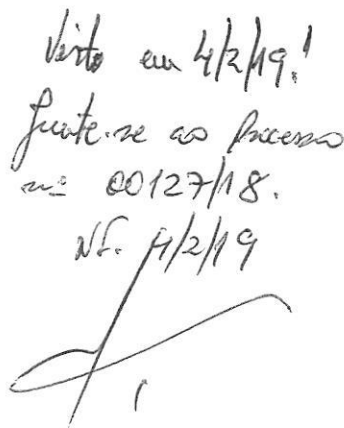 Visto em 4/2/19!
Junte-se ao Processo
nº 00127/18.
NF. 4/2/19